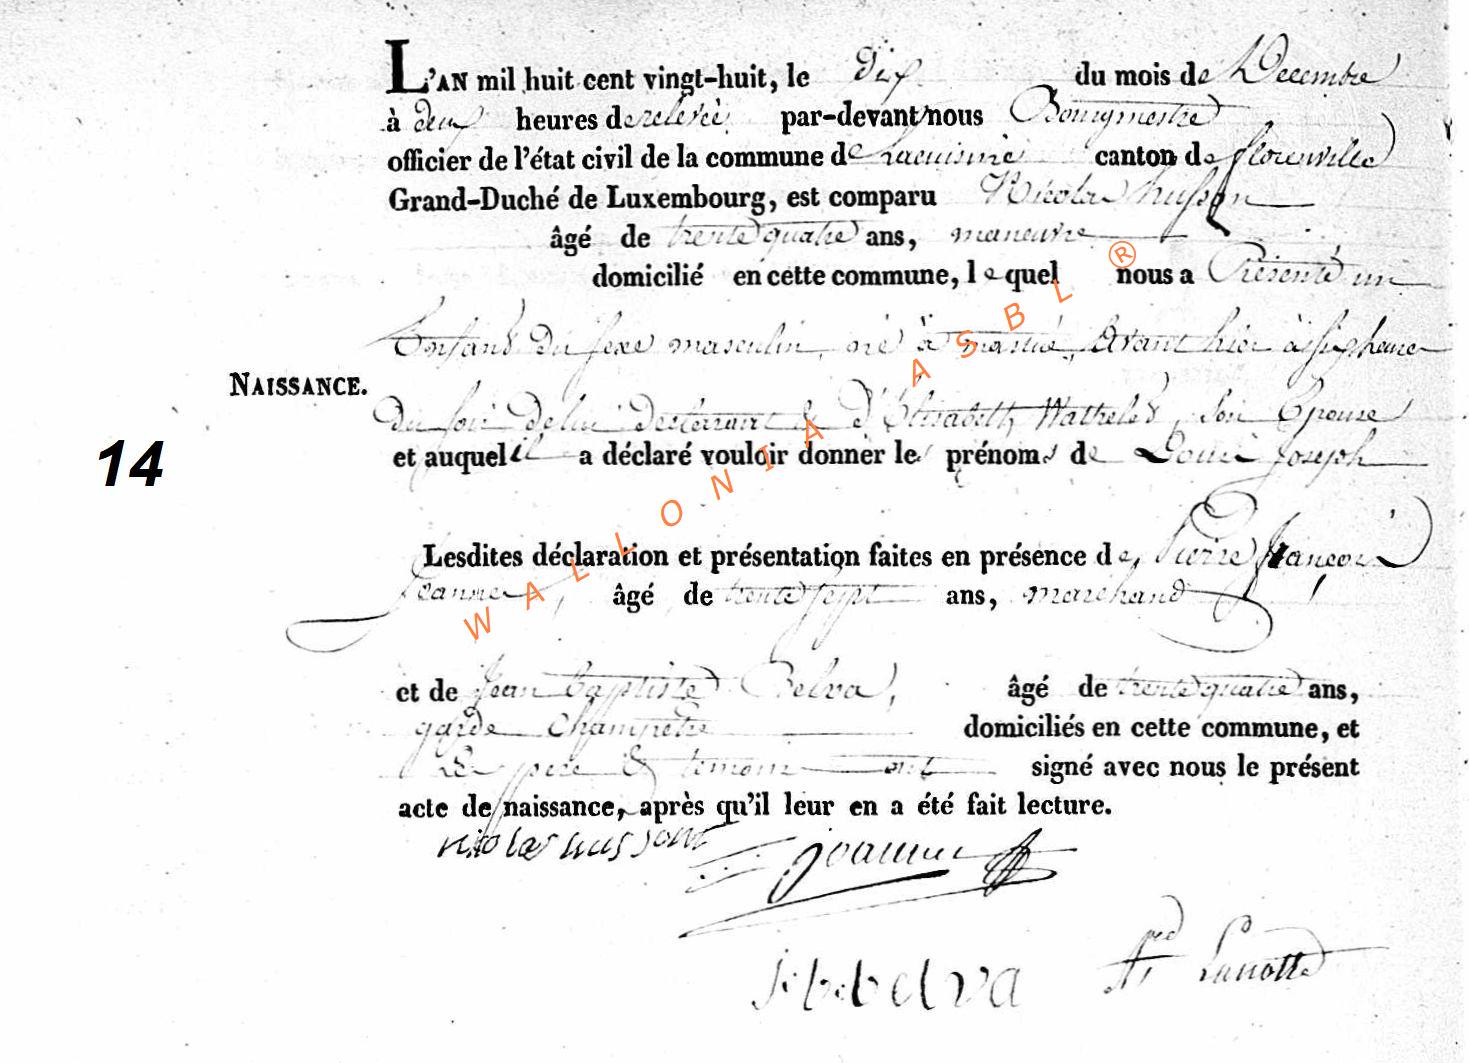 L'AN mil huit cent vingt-huit, le dix du mois de Decembre
à deux heures de relevée par-devant nous Bourgmestre
officier de l'état civil de la commune de Lacuisine canton de florenville
Grand-Duché de Luxembourg, est comparu Nicolas husson
âgé de trente quatre ans, maneuvre
domicilié en cette commune, lequel nous a Présenté un
Enfant du sexe masculin, né à martué, Avant hier à six heures
NAISSANCE.
du soir de lui declarant & d'Elisabeth Wathelet, son Epouse
14
et auquel il a déclaré vouloir donner les prénoms de Louis Joseph
Lesdites déclaration et présentation faites en présence de Pierre françois
Jeanne, âgé de trente sept ans, marchand
et de Jean Baptiste Belva, âgé de trente quatre ans,
garde Champetre domiciliés en cette commune, et
Les pere & temoins ont signé avec nous le présent
acte de naissance, après qu'il leur en a été fait lecture.
nicolas husson
j b belva Lanotte
WALLONIA ASBL ®